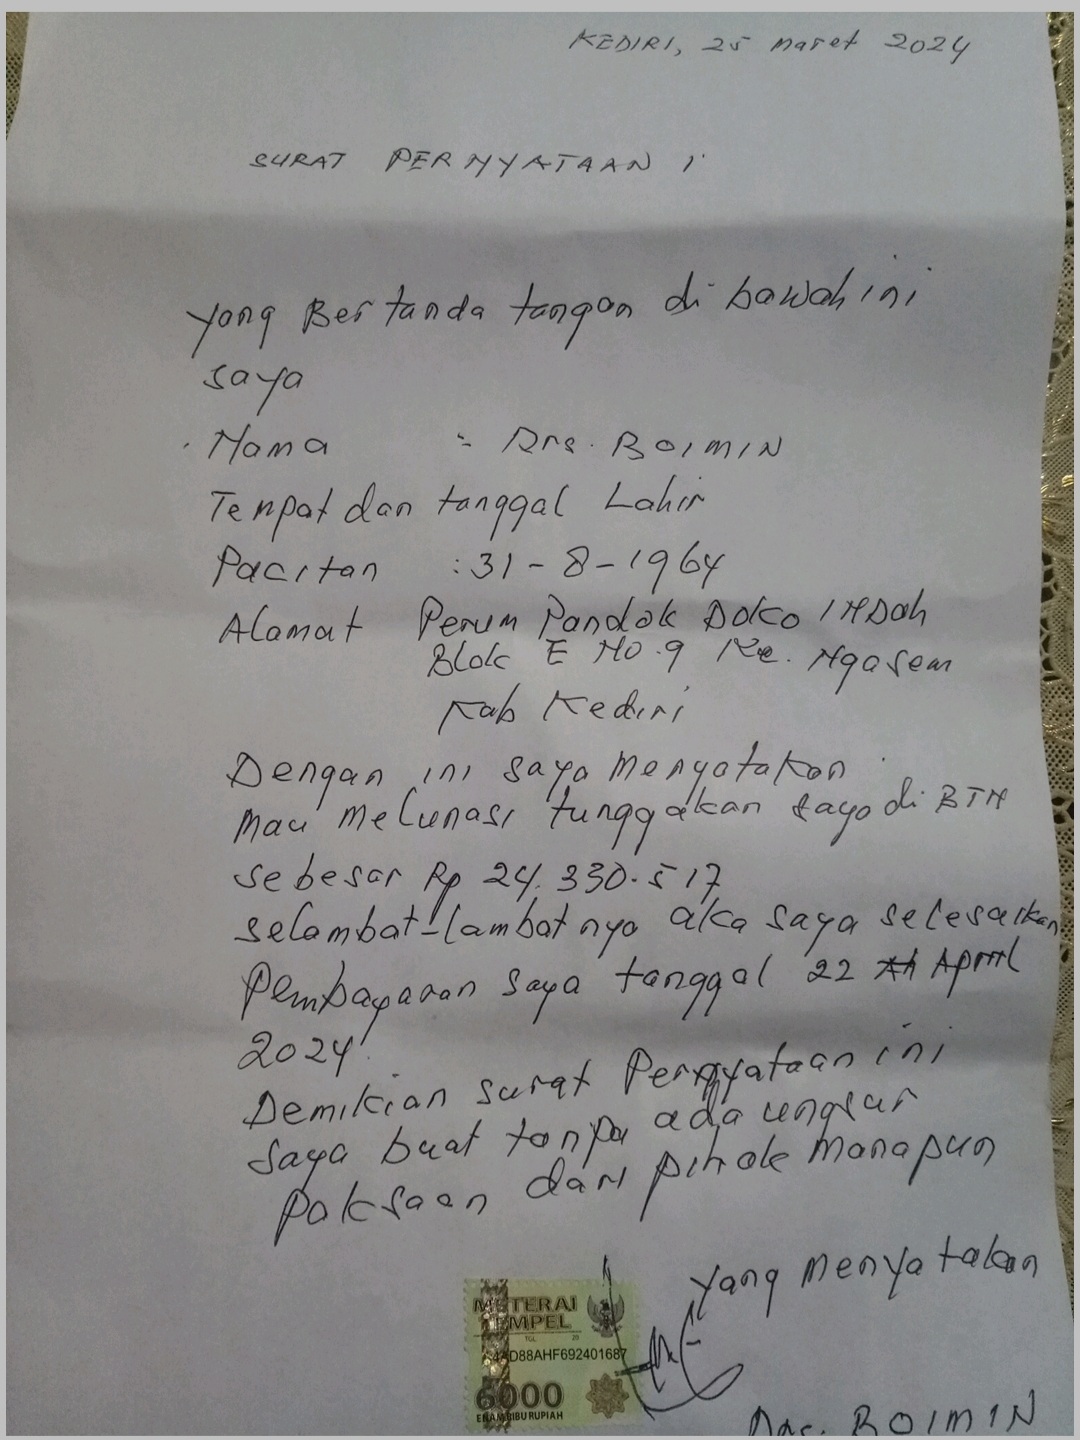 KEDIRI, 25 Maret 2024
SURAT PERNYATAAN
Yang Bertanda tangan di bawah ini
saya
Nama : Drs. BOIMIN
Tempat dan tanggal Lahir
Pacitan : 31-8-1964
Alamat Perum Pondok Doko INDah
Blok E No.9 Ke. Ngasem
Kab Kediri
Dengan ini saya Menyatakan
mau melunasi tunggakan saya di BTN
sebesar Rp 24.330.517
selambat-lambatnya aka saya selesaikan
Pembayaran saya tanggal 22 April
2024
Demikian surat Pernyataan ini
saya buat tanpa ada ungsur
paksaan dari pihak manapun
Yang Menyatakan
METERAI
TEMPEL
TGL 20
D88AHF692401687
6000
ENAM RIBU RUPIAH
Drs. BOIMIN